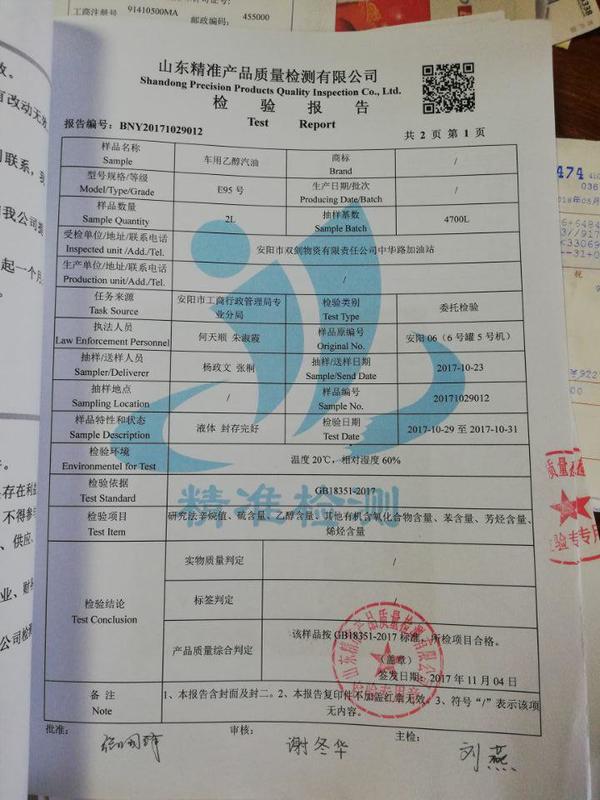 工商注册号 91410500MA
邮政编码: 455000
山东精准产品质量检测有限公司
Shandong Precision Products Quality Inspection Co., Ltd.
检 验 报 告
Test Report
报告编号: BNY20171029012
共 2 页 第 1 页
样品名称 车用乙醇汽油 商标 /
Sample Brand
型号规格/等级 E95 号 生产日期/批次 /
Model/Type/Grade Producing Date/Batch
样品数量 2L 抽样基数 4700L
Sample Quantity Sample Batch
受检单位/地址/联系电话 安阳市双剑物资有限责任公司中华路加油站
Inspected unit /Add./Tel.
生产单位/地址/联系电话 /
Production unit/Add./Tel.
任务来源 安阳市工商行政管理局专业分局 检验类别 委托检验
Task Source Test Type
执法人员 何天顺 朱淑霞 样品原编号 安阳 06（6 号罐 5 号机）
Law Enforcement Personnel Original No.
抽样/送样人员 杨政文 张桐 抽样/送样日期 2017-10-23
Sampler/Deliverer Sample/Send Date
抽样地点 / 样品编号 20171029012
Sampling Location Sample No.
样品特性和状态 液体 封存完好 检验日期 2017-10-29 至 2017-10-31
Sample Description Test Date
检验环境 温度 20℃，相对湿度 60%
Environmentel for Test
检验依据 GB18351-2017
Test Standard
检验项目 研究法辛烷值、硫含量、乙醇含量、其他有机含氧化合物含量、苯含量、芳烃含量、
Test Item 烯烃含量
检验结论
Test Conclusion
实物质量判定 /
标签判定 /
产品质量综合判定 该样品按 GB18351-2017 标准，所检项目合格。
（盖章）
签发日期: 2017 年 11 月 04 日
备 注 1、本报告含封面及封二。2、本报告复印件不加盖红章无效。3、符号“/”表示该项
Note 无内容。
批准:
审核: 谢冬华
主检: 刘燕
精准检测
山东精准产品质量检测有限公司
检验专用章